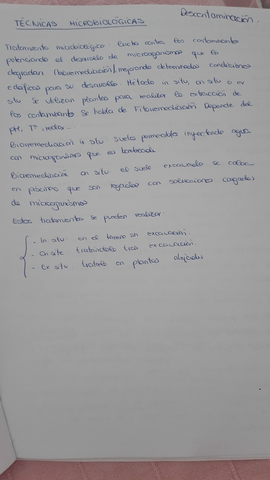 Descontaminación.
TÉCNICAS MICROBIOLÓGICAS
Tratamiento microbiológico los contaminantes
potenciando el desarrollo de microorganismos que los
degradan (biorremediación) mejorando determinadas condiciones
edáficas para su desarrollo. Método in situ, on situ o ex
situ. Se utilizan plantas para realizar la extracción de
los contaminantes se habla de Fitorremediación. Depende del
pH, Tª, redox...
Biorremediación in situ suelos permeables inyectando agua
con microorganismos
Biorremediación on situ el suelo excavado se coloca
en piscinas que son regadas con soluciones cargadas
de microorganismos
Estos tratamientos se pueden realizar
- In situ en el terreno sin excavación.
- On site tratándolos tras excavación.
- Ex situ tratados en plantas alejadas